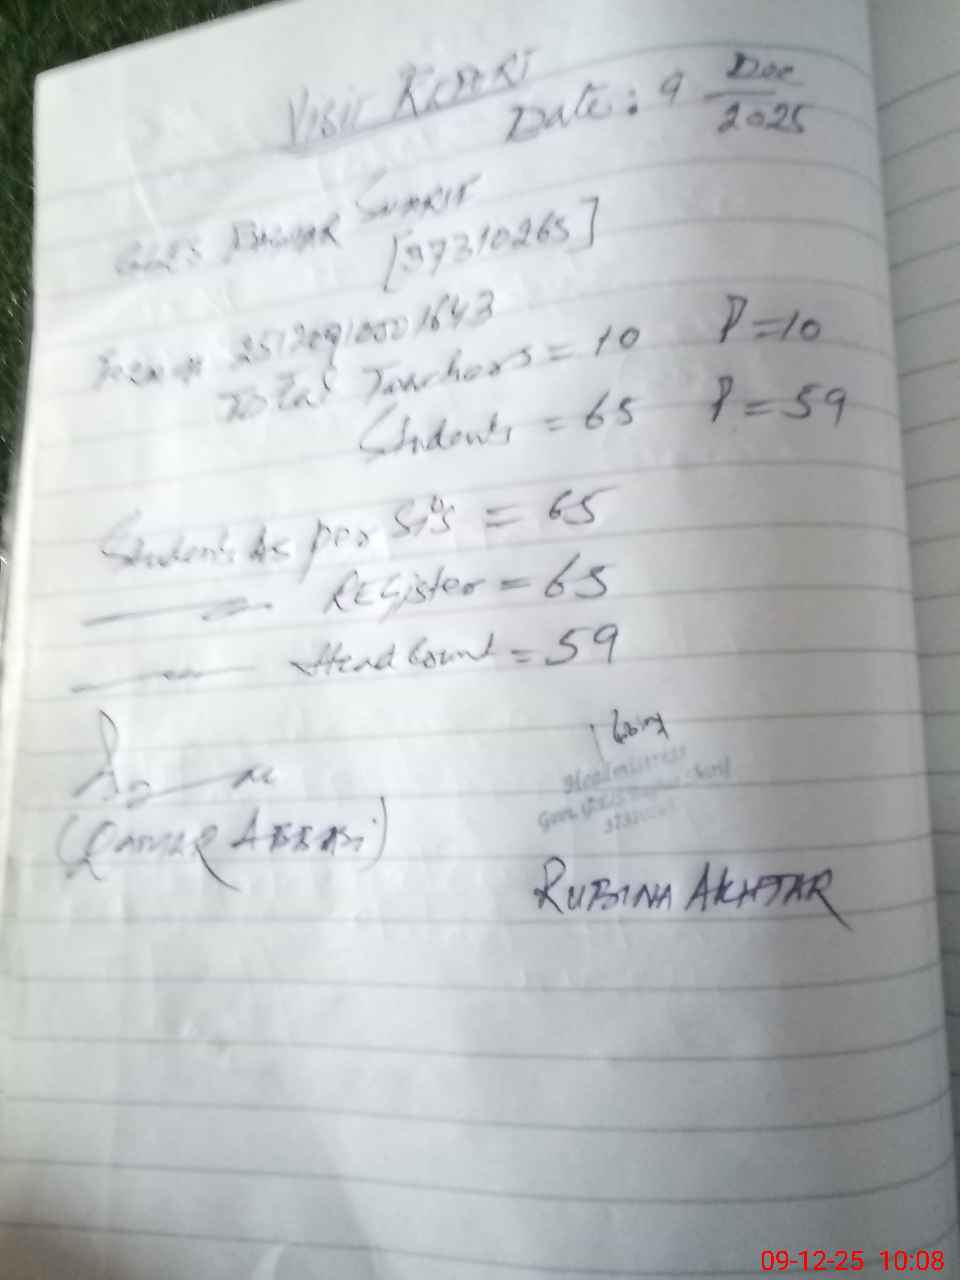 VISIT REPORT
Date: 9 Dec
2025
GGES
[37310265]
25120910001643
Total Teachers = 10 P = 10
Students = 65 P = 59
Students As per SIS = 65
Register = 65
Head Count = 59
Headmistress
Govt.
(QAMAR ABBASI)
RUBINA AKHTAR
09-12-25 10:08